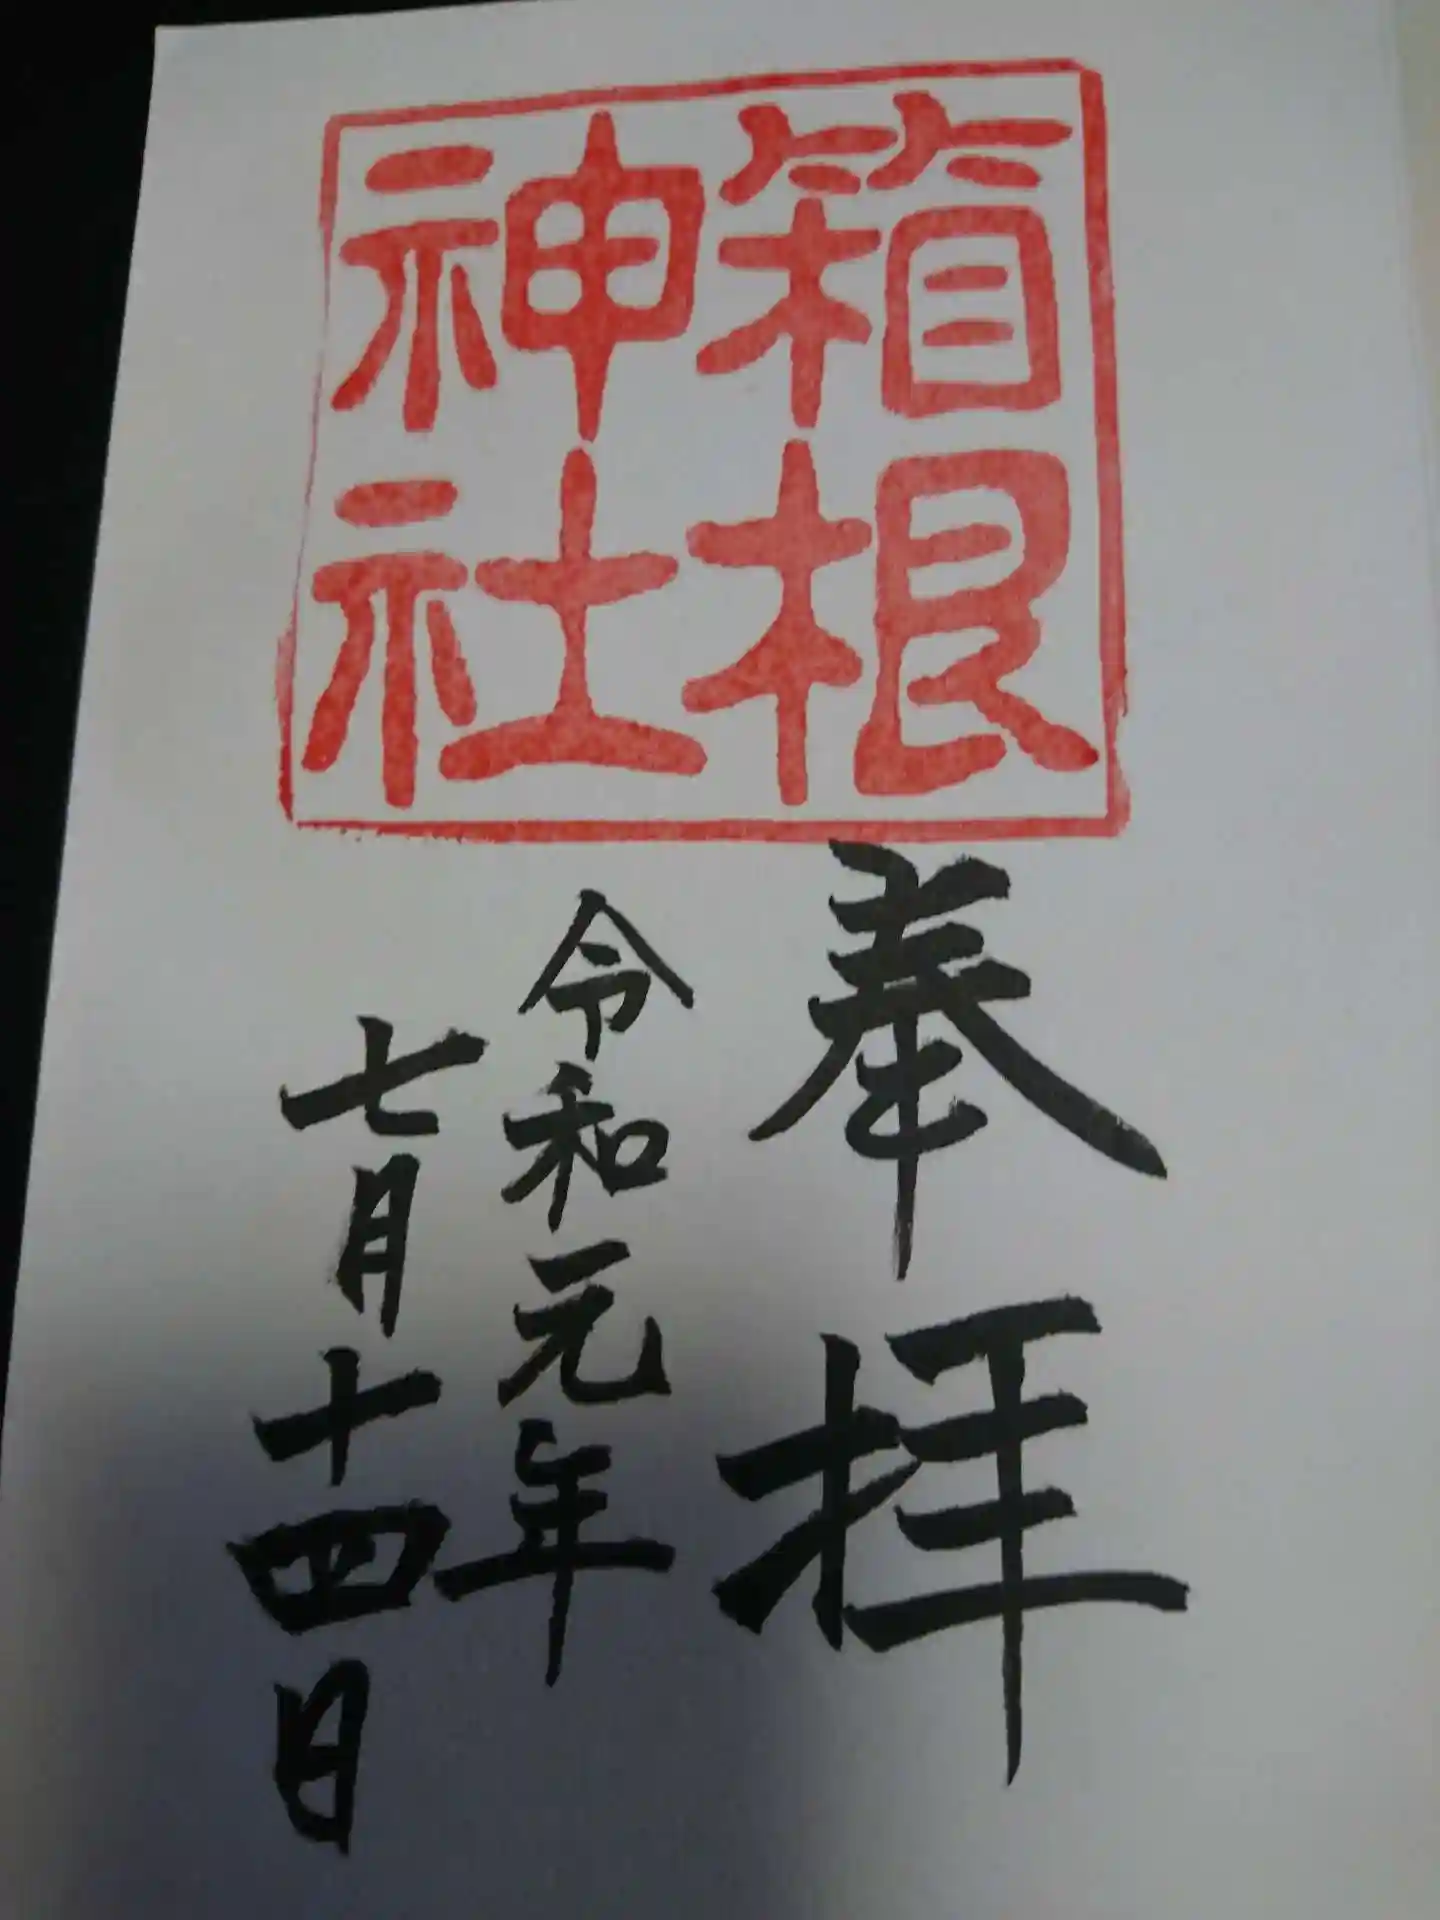 箱根
神社
奉拝
令和元年
七月十四日